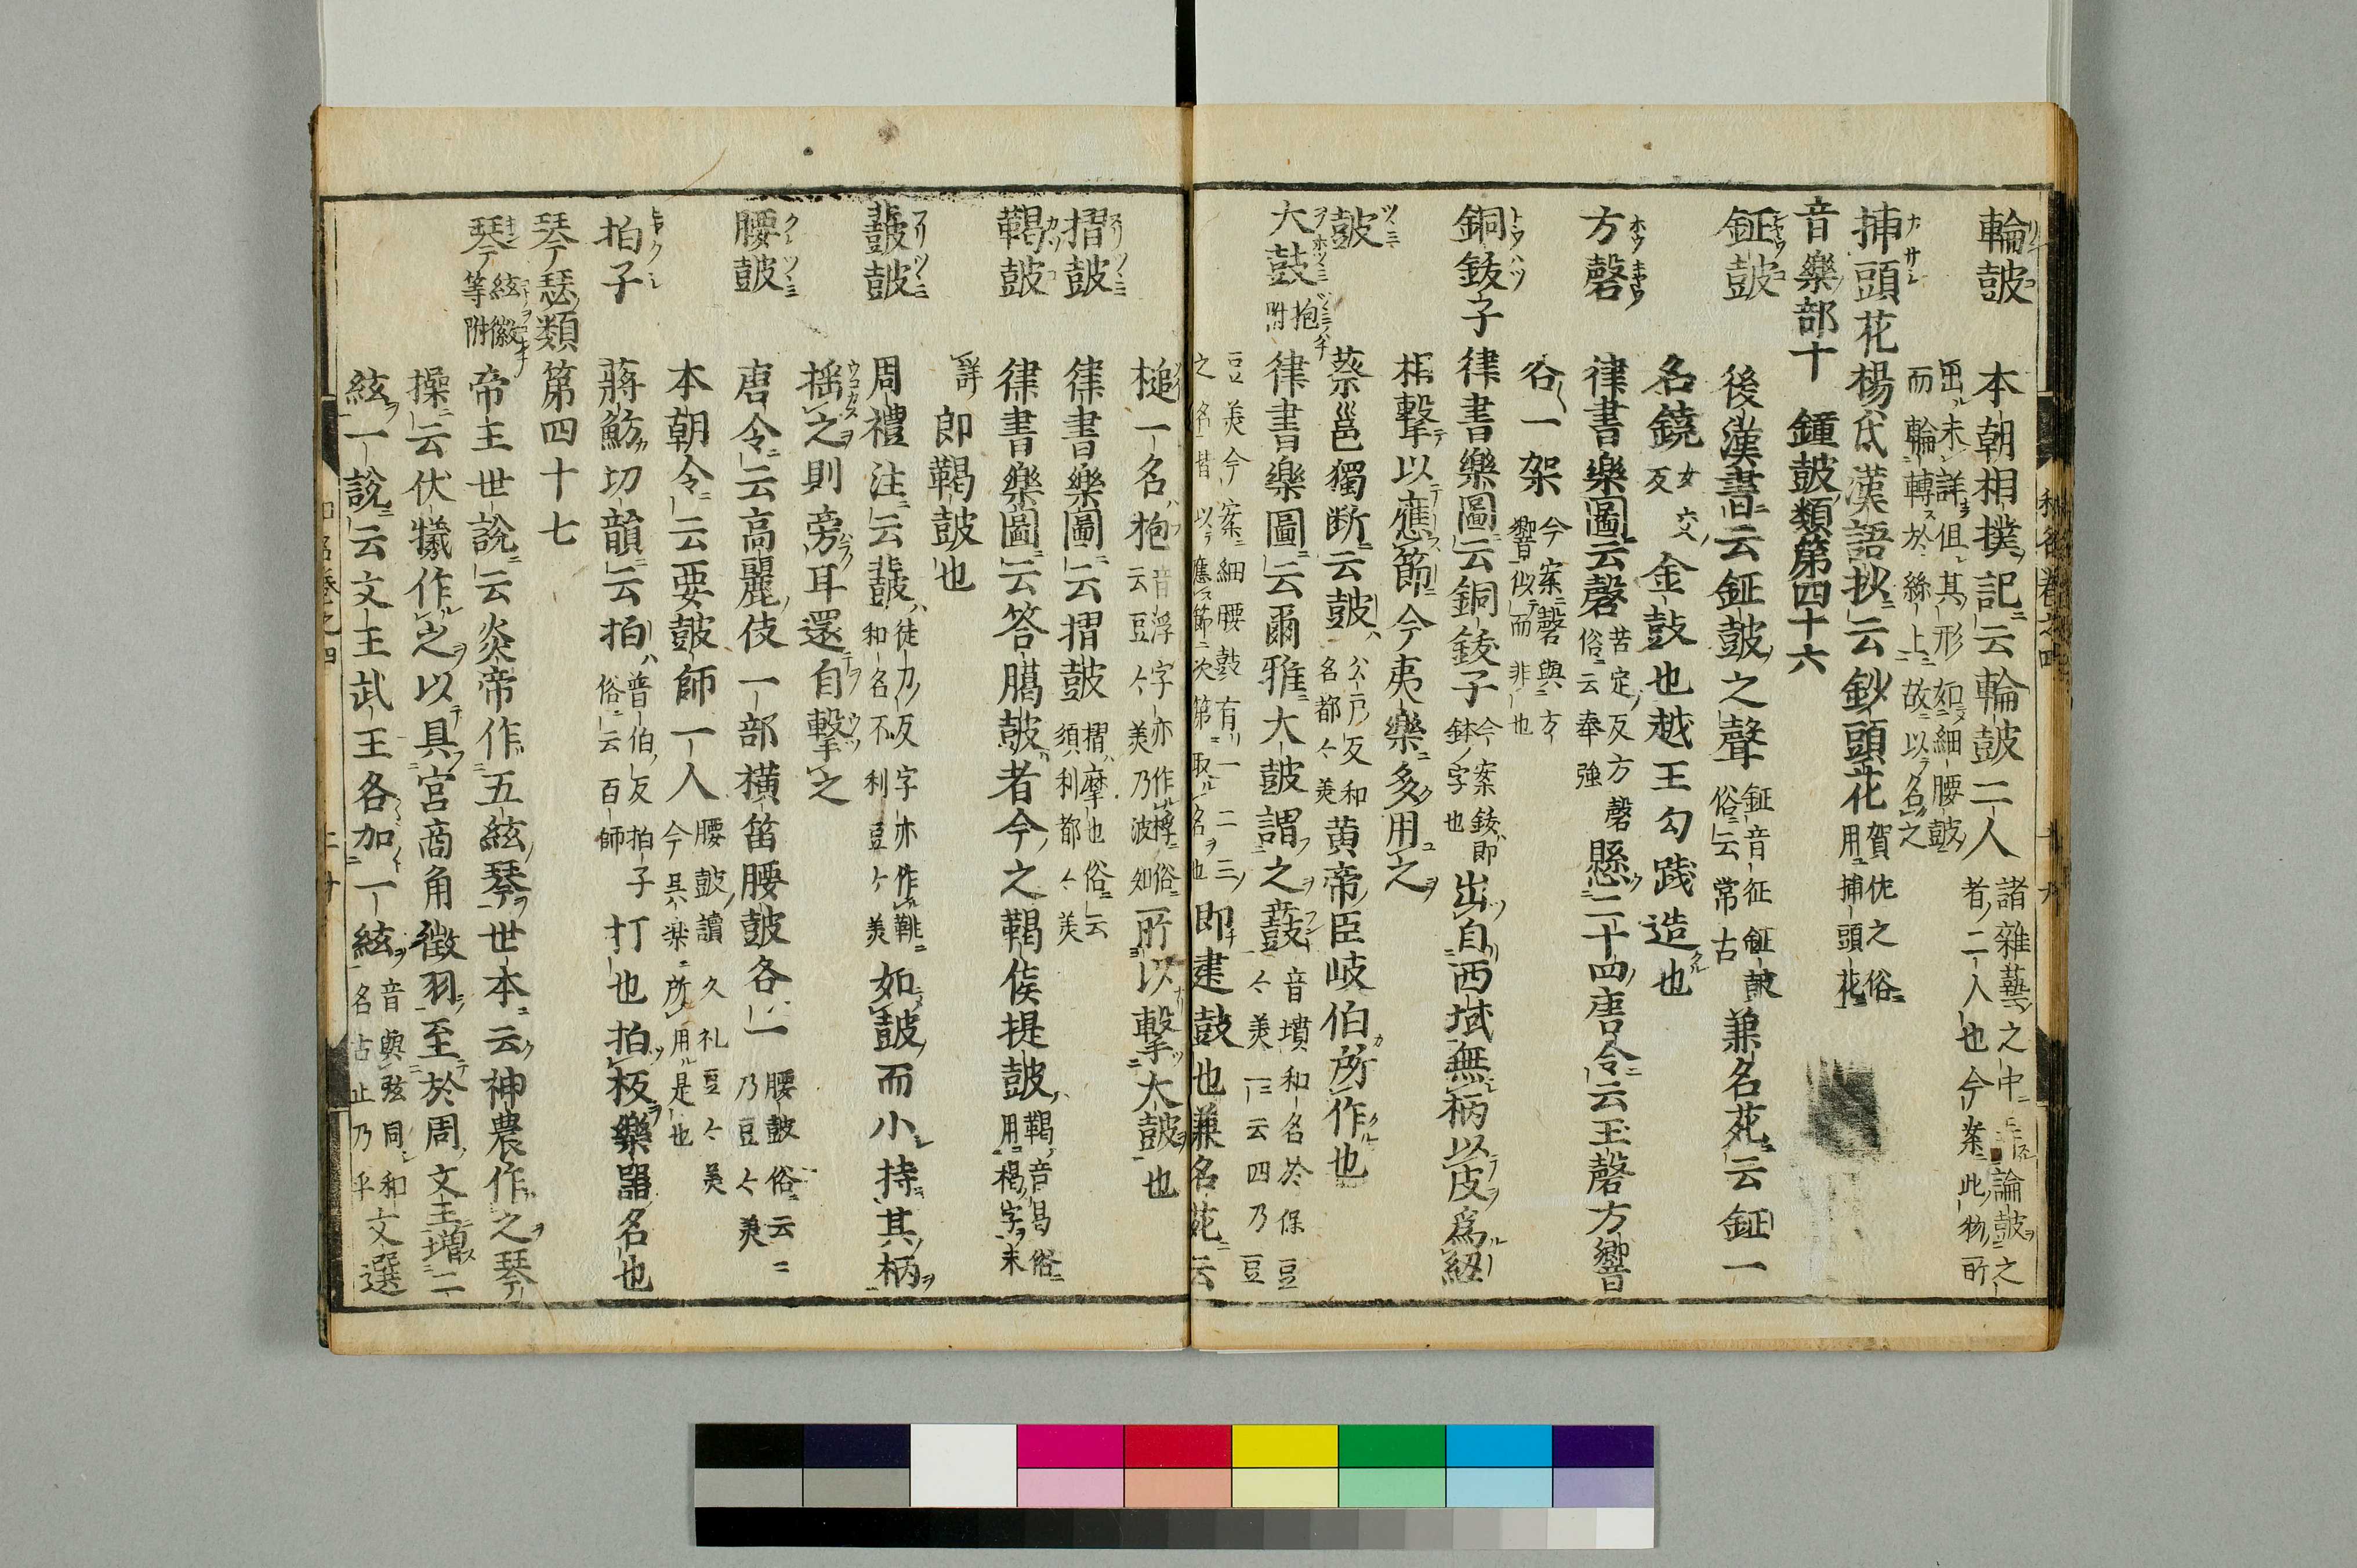 輪皷 本朝相撲記云輪皷二人諸雜藝之中非論皷之者二人也今案此物所
出未詳但其形如細腰鼓而輪轉於絲上故以名之
捕頭花 楊氏漢語抄云鈔頭花賀佐之俗用捕頭花
音樂部十 鐘皷類第四十六
鉦皷 後漢書云鉦皷之聲鉦音征鉦皷俗云常古兼名苑云鉦一
名鐃女交反金鼓也越王勾踐造也
方磬 律書樂圖云磬苦定反方磬俗云奉強懸二十四唐令云玉磬方響
各一架今案磬與方響似而非也
銅鈸子 律書樂圖云銅錂子今案錂即鉢字也出自西域無柄以皮爲紐
相擊以應節今夷樂多用之
皷 蔡邕獨断云皷公乃反和名都々美黄帝臣岐伯所作也
大鼓抱附 律書樂圖云爾雅大皷謂之鼖音墳和名於保豆々美一云四乃豆
豆美今案細腰鼓有一二三之名皆以應節次第取名也即建鼓也兼名苑云
槌一名抱音浮字亦作桴俗云豆々美乃波知所以擊大皷也
摺皷 律書樂圖云摺皷摺摩也俗云須利都々美
鞨皷 律書樂圖云答臈皷者今之鞨侯提皷鞨音曷俗用楬字未
詳即鞨皷也
鼗皷 周禮注云鼗徒刀反字亦作鞉和名不利豆々美如皷而小持其柄
揺之則旁耳還自擊之
腰皷 唐令云高麗伎一部横笛腰皷各一腰皷俗云三乃豆々美
本朝令云要皷師一人腰皷讀久礼豆々美今呉楽所用是也
拍子 蔣魴切韻云拍普伯反拍子俗云百師打也拍板樂器名也
琴瑟類第四十七
琴絃徽等附 帝王世説云炎帝作五絃琴世本云神農作之琴
操云伏犧作之以具宮商角徴羽至於周文王増二
絃一説云文王武王各加一絃音與弦同和名古止乃乎文選